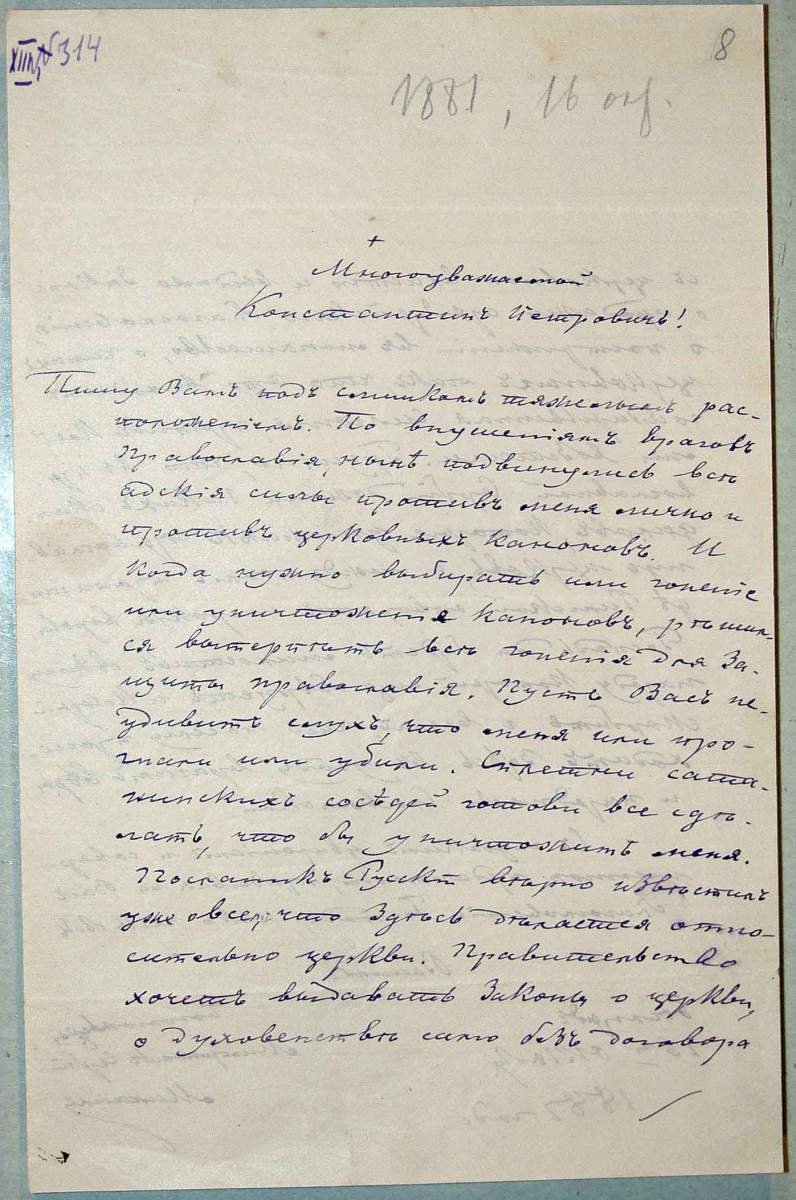 XIII № 314
8
1881, 16 окт.
+
Многоуважаемой
Константинъ Петровичъ!
Пишу Вамъ подъ слишкомъ тяжелымъ рас-
положеніемъ. По внушеніямъ враговъ
Православія, нынѣ подвинулись всѣ
адскія силы противъ меня лично и
противъ церковныхъ каноновъ. И
когда нужно выбирать или гоненіе
или уничтоженія каноновъ, рѣшил-
ся вытерпить всѣ гоненія для за-
щиты православія. Пусть Васъ не-
удивитъ слухъ, что меня или про-
гнали или убили. Сплетни сата-
нинскихъ сосѣдей готови все сдѣ-
лать, что бы уничтожить меня.
Посланикъ Русскі вѣрно извѣстилъ
уже овсем, что здѣсь дѣлается отно-
сительно церкви. Правительство
хочетъ выдавать законы о церкви,
о духовенствѣ само безъ договора